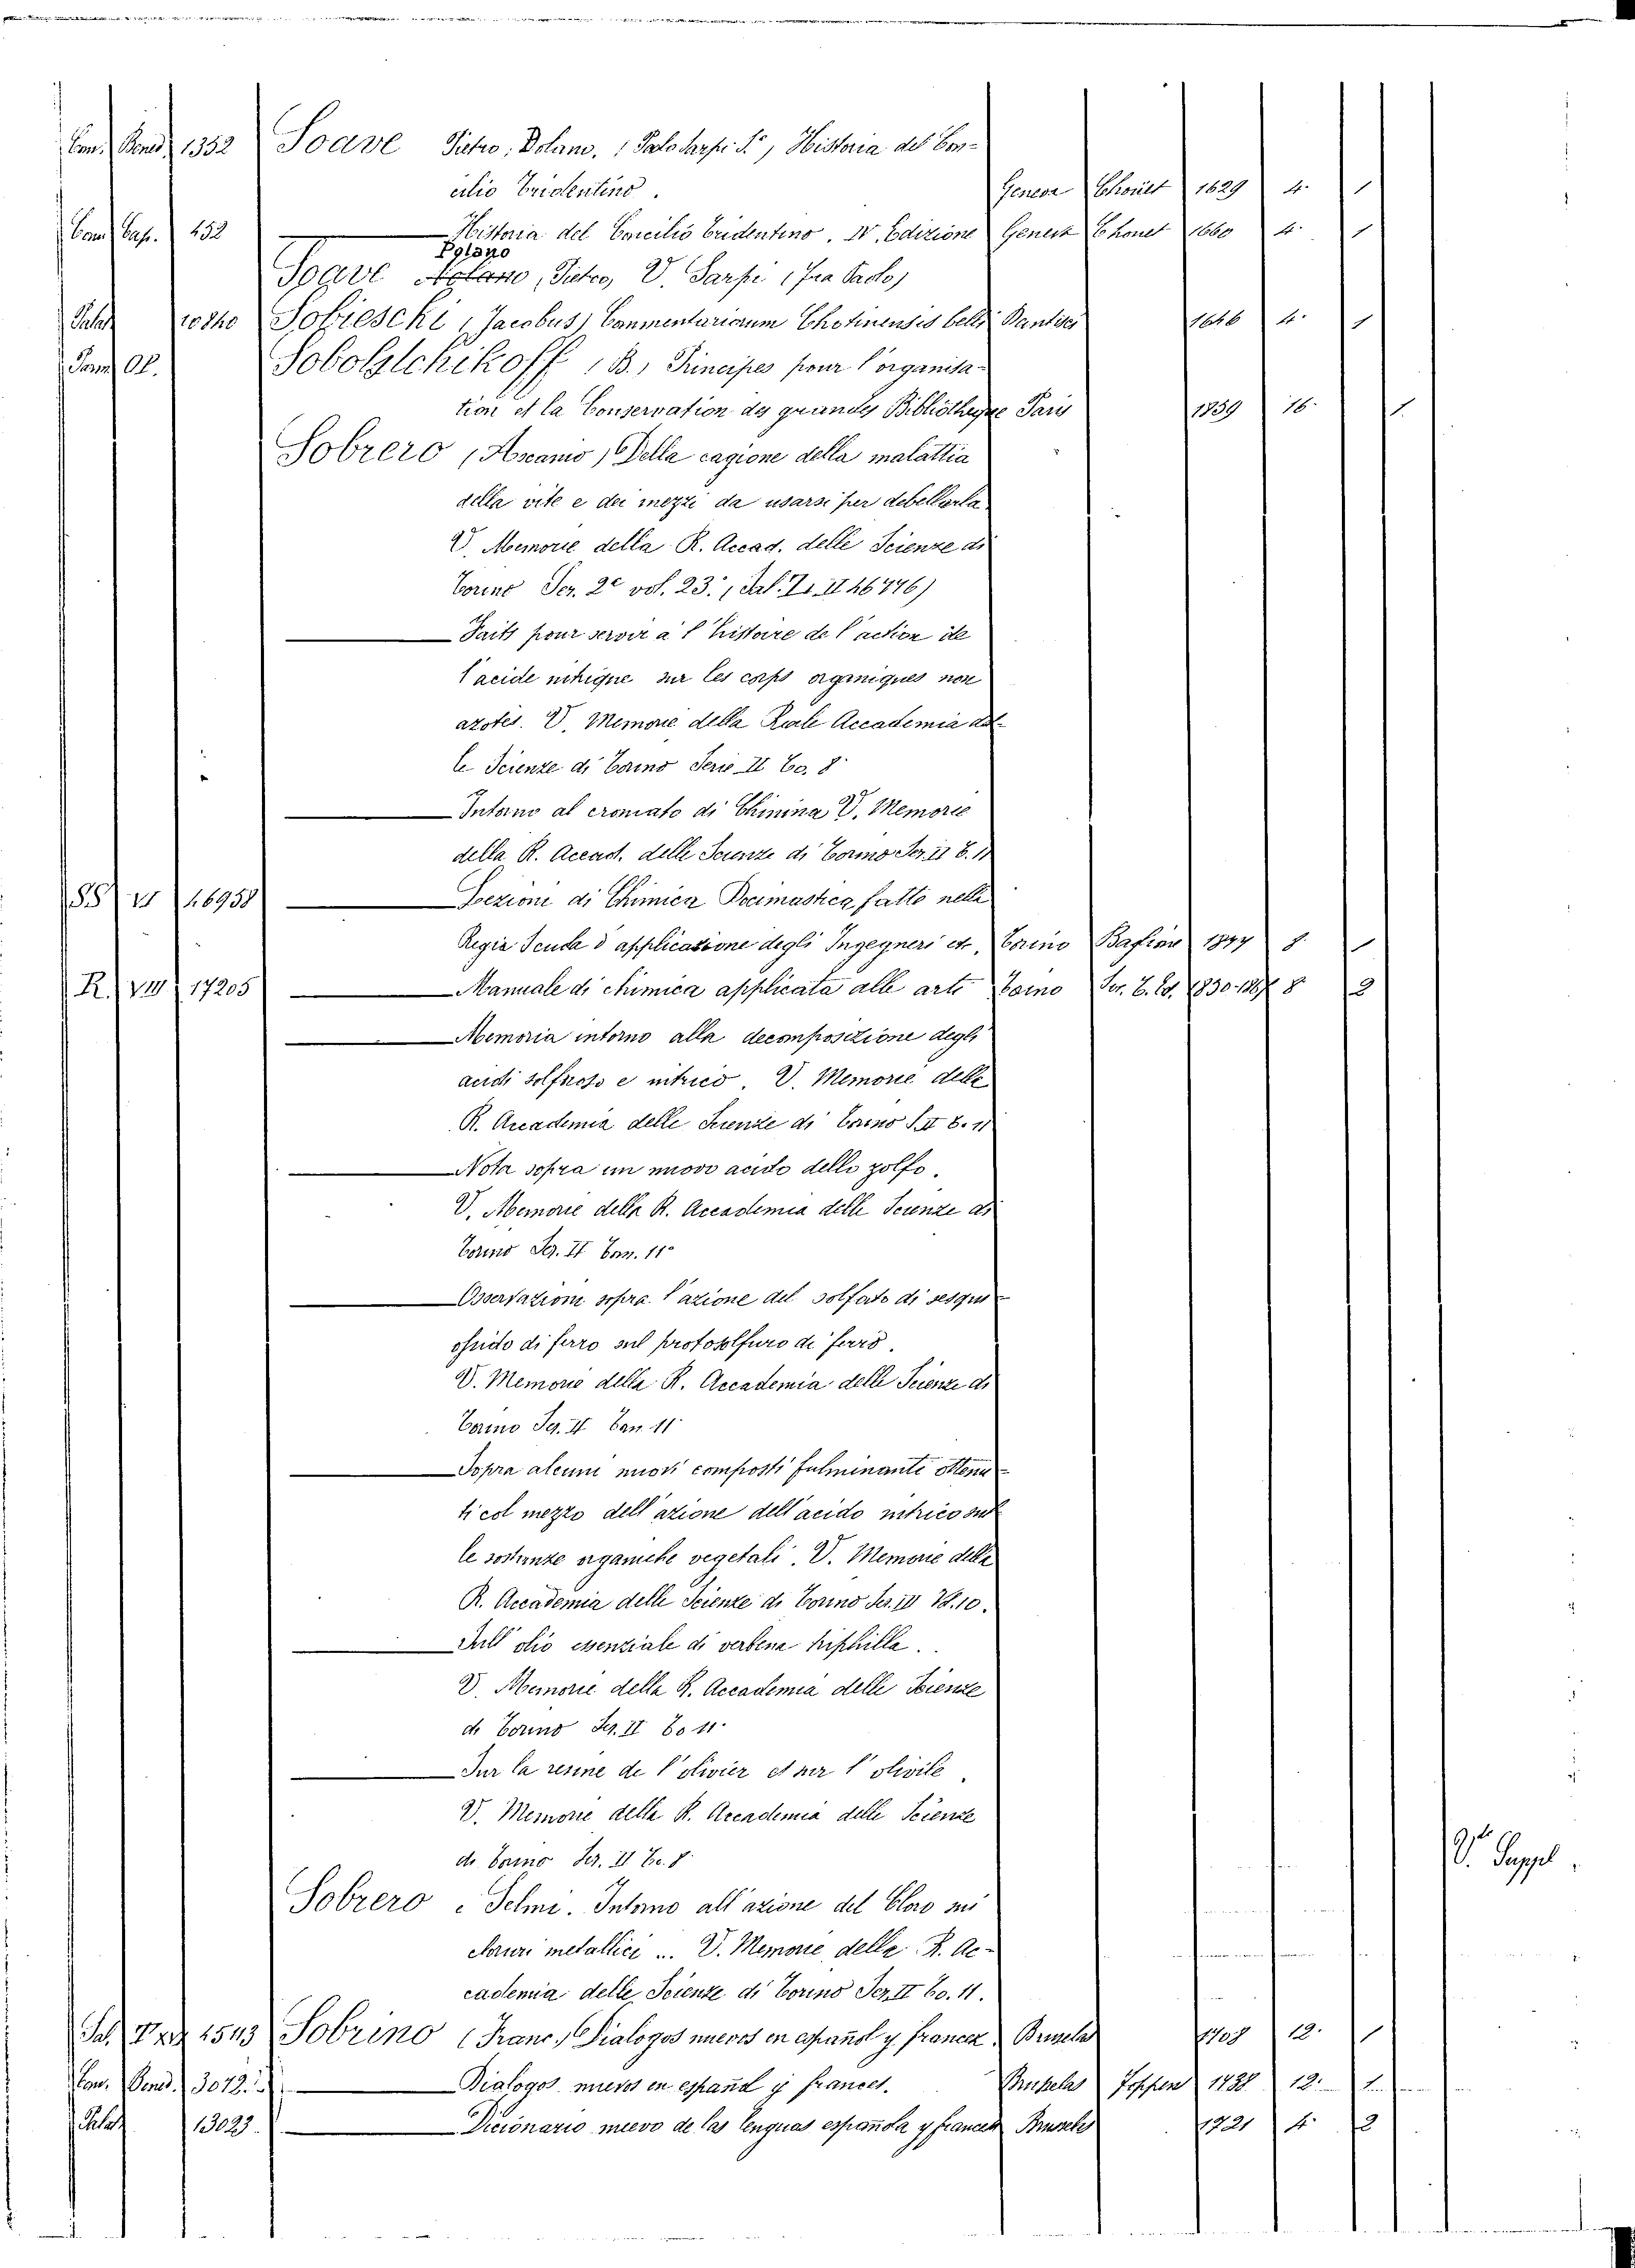 Con. Bened. 1352 Soave Pietro, Polano, Historia del Con-
cilio Tridentino. Geneva Chouet 1629 4. 1
Conv. Cap. 152 Historia del Concilio Tridentino. IV. Edizione Geneva Chouet 1660 4. 1
Polano
Soave Nolano, Pietro, V. Sarpi (Fra Paolo)
Palat. 10840 Sobiescki (Jacobus) Commentariorum Chotinensis belli Dantisci 1646 4. 1
Sobolslchikoff (B.) Principes pour l'organisa-
tion et la Conservation des grandes Bibliotheque Paris 1859 16. 1.
Sobrero (Ascanio) Della cagione della malattia
della vite e dei mezzi da usarsi per debellarla
V. Memorie della R. Accad. delle Scienze di
Torino Ser. 2e vol. 23. (Sal. II 46776)
Faits pour servir a l'histoire de l'action de
l'acide nitrique sur les corps organiques non
azotés. V. Memorie della Reale Accademia del-
le Scienze di Torino Serie II To. 8
Intorno al cromato di Chinina V. Memorie
della R. Accad. delle Scienze di Torino Ser. II T. 11
SS VI 16958 Lezioni di Chimica Docimastica fatte nella
Regia Scuola d'applicazione degli Ingegneri et. Torino 1877 8. 1
R. VIII 17205 Manuale di chimica applicata alle arti Torino 8 2
Memoria intorno alla decomposizione degli
acidi solforoso e nitrico. V. Memorie della
R. Accademia delle Scienze di Torino S. II T. 11
Nota sopra un nuovo acido dello zolfo.
V. Memorie della R. Accademia delle Scienze di
Torino Ser. II Tom. 11
Osservazioni sopra l'azione del solfato di sesqui-
ossido di ferro sul protosolfuro di ferro.
V. Memorie della R. Accademia delle Scienze di
Torino Ser. II Tom. 11
Sopra alcuni nuovi composti fulminanti ottenu-
ti col mezzo dell'azione dell'acido nitrico sul-
le sostanze organiche vegetali. V. Memorie della
R. Accademia delle Scienze di Torino Ser. II T. 10.
Sull'olio essenziale di verbena triphilla.
V. Memorie della R. Accademia delle Scienze
di Torino Ser. II To 11
Sur la resine de l'olivier et sur l'olivile
V. Memorie della R. Accademia delle Scienze
di Torino Ser. II To. 8
V. Suppl.
Sobrero e Selmi. Intorno all'azione del Cloro sui
cloruri metallici ... V. Memorie della R. Ac-
cademia delle Scienze di Torino Ser. II To. 11.
Sal. 1543 Sobrino (Franc.) Dialogos nuevos en español y francez Bruselas 1708 12. 1
Con. Bened. 3078. Dialogos nuevos en españd y frances. Bruselas Foppen 1738 12. 1
Palat. 13023. Dicionario nuevo de las lenguas española y francesa Bruseles 1721 4. 2